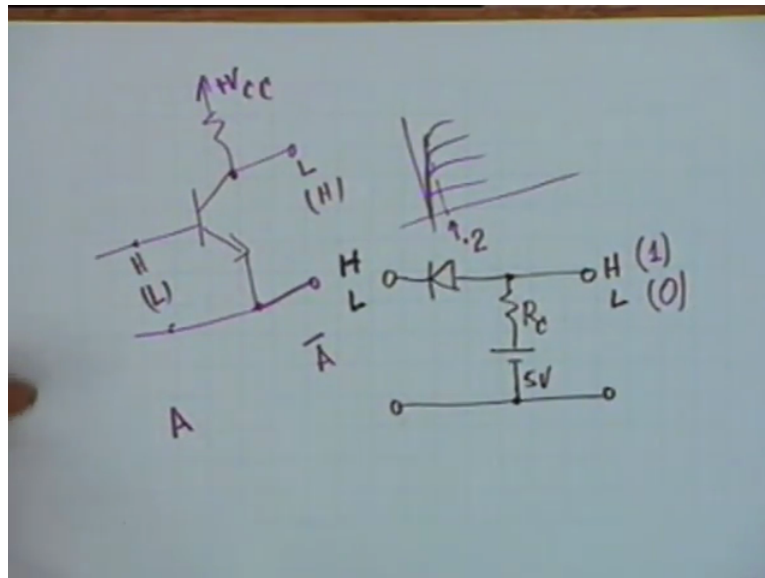 +VCC
L
(H)
H
(L)
A
A̅
.2
H
L
H (1)
L (0)
Rc
5V